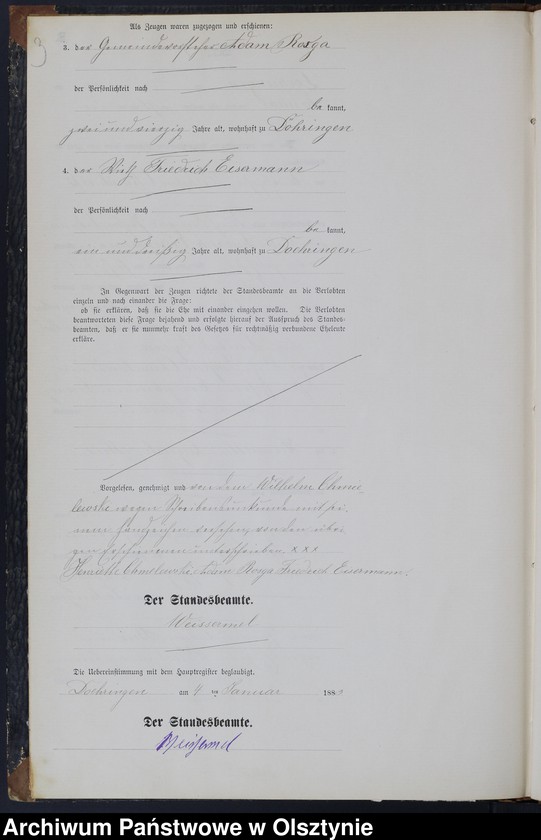 3
Als Zeugen waren zugezogen und erschienen:
3. der Gemeindevorsteher Adam Rozga
der Persönlichkeit nach
be kannt,
zweiundvierzig Jahre alt, wohnhaft zu Döhringen
4. der Wirth Friedrich Eisermann
der Persönlichkeit nach
be kannt,
ein und dreißig Jahre alt, wohnhaft zu Doehringen
In Gegenwart der Zeugen richtete der Standesbeamte an die Verlobten
einzeln und nach einander die Frage:
ob sie erklären, daß sie die Ehe mit einander eingehen wollen. Die Verlobten
beantworteten diese Frage bejahend und erfolgte hierauf der Ausspruch des Standes-
beamten, daß er sie nunmehr kraft des Gesetzes für rechtmäßig verbundene Eheleute
erkläre.
Vorgelesen, genehmigt und von dem Wilhelm Chmie
lewski wegen Schreibensunkunde mit sei
nem Handzeichen versehen, von den übri
gen Erschienenen unterschrieben. x x x
Henriette Chmelewski Adam Rozga Friedrich Eisermann.
Der Standesbeamte.
Weissermel
Die Uebereinstimmung mit dem Hauptregister beglaubigt.
Doehringen am 4 ten Januar 188
Der Standesbeamte.
Weissermel
Archiwum Państwowe w Olsztynie